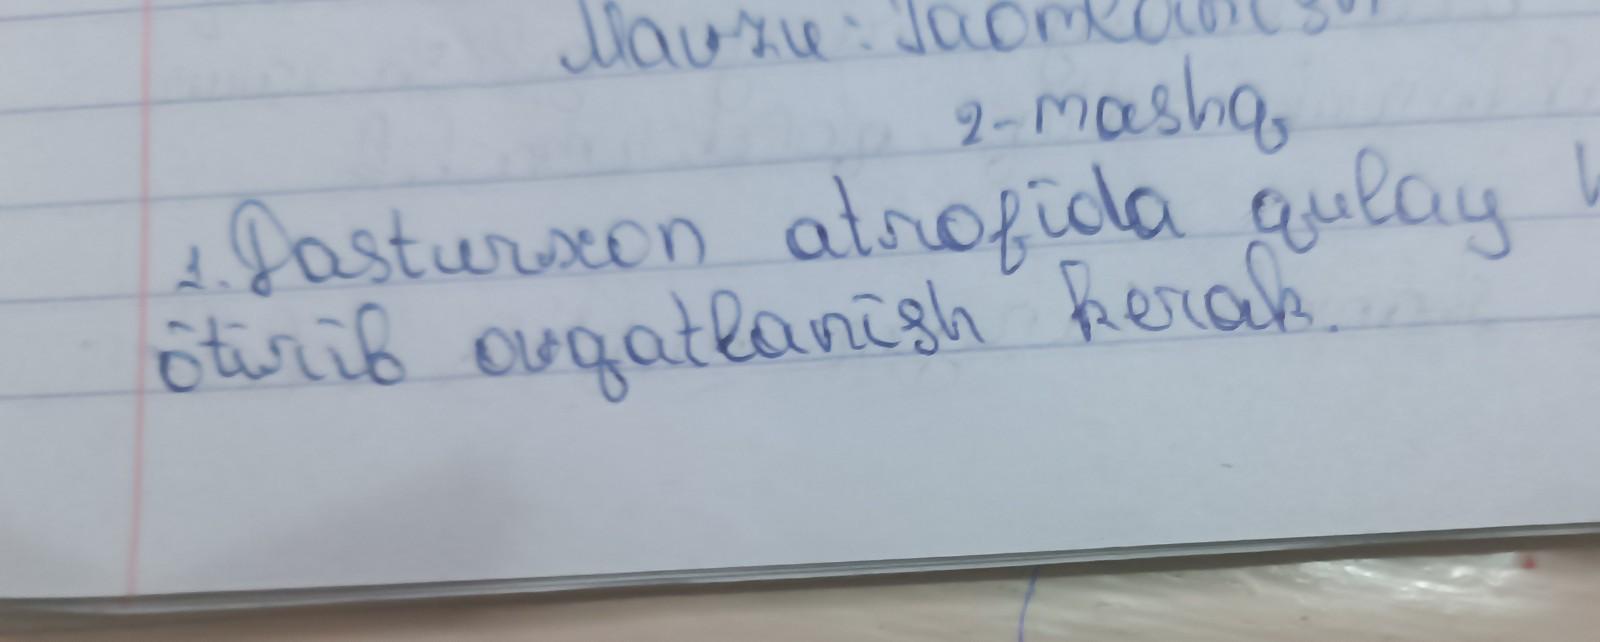 Mavzu:
2-mashq
1. Dasturxon atrofida qulay
ōtirib ovqatlanish kerak.